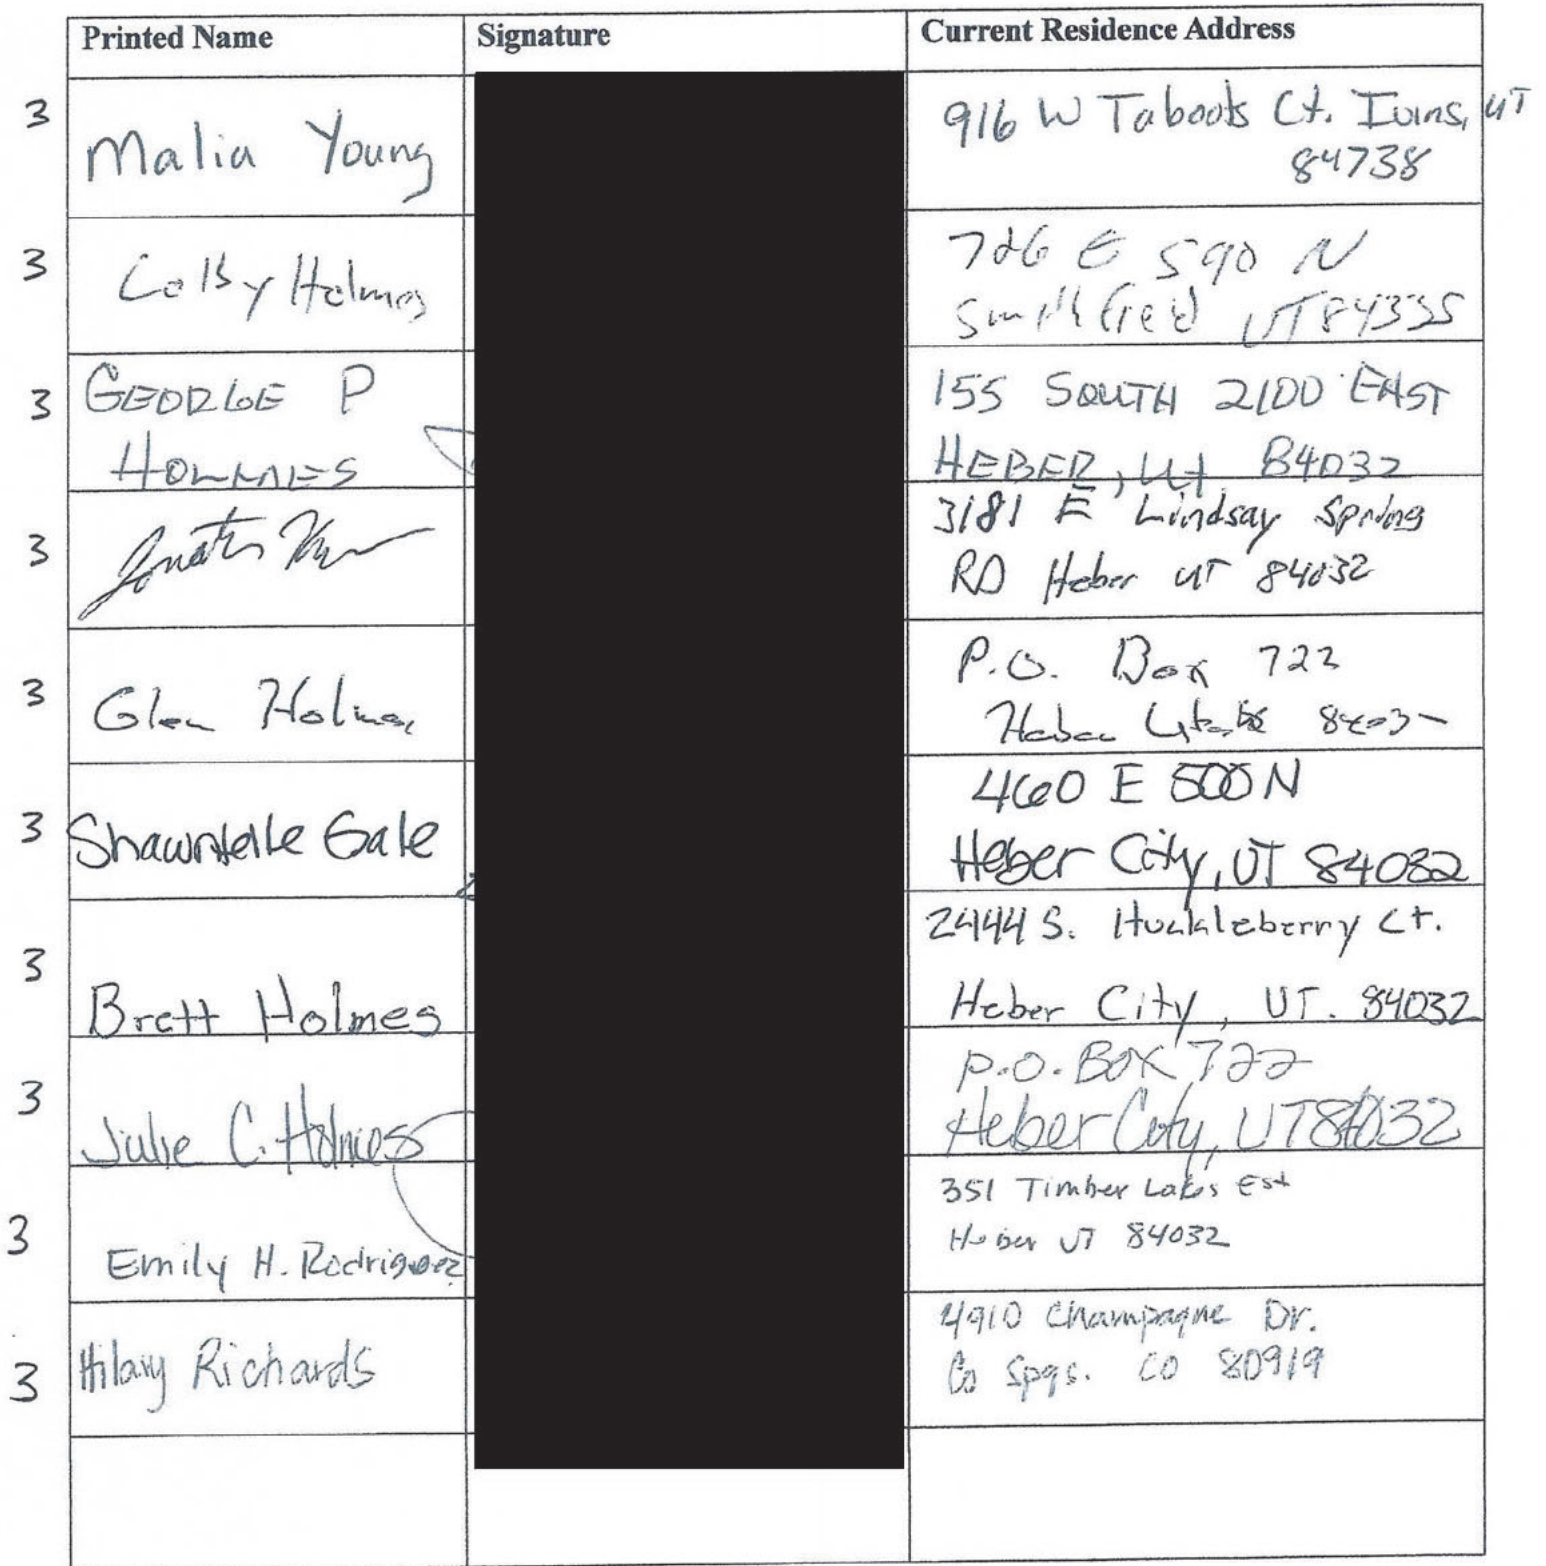 Printed Name Signature Current Residence Address
3 Malia Young 916 W Taboots Ct. Ivins, UT
84738
3 Colby Holmes 726 E 590 N
Smithfield UT 84335
3 GEORGE P 155 SOUTH 2100 EAST
HOLMES HEBER, Ut 84032
3 3181 E Lindsay Spring
RD Heber UT 84032
3 Glen Holmes P.O. Box 722
Heber Utah 8403
3 Shawntelle Gale 460 E 500 N
Heber City, UT 84032
3 2444 S. Huckleberry Ct.
Brett Holmes Heber City, UT. 84032
3 P.O. BOX 722
Julie C. Holmes Heber City, UT 84032
3 351 Timber Lakes Est
Emily H. Rodriguez Heber UT 84032
3 Hilary Richards 4910 Champagne Dr.
Co Spgs. CO 80919